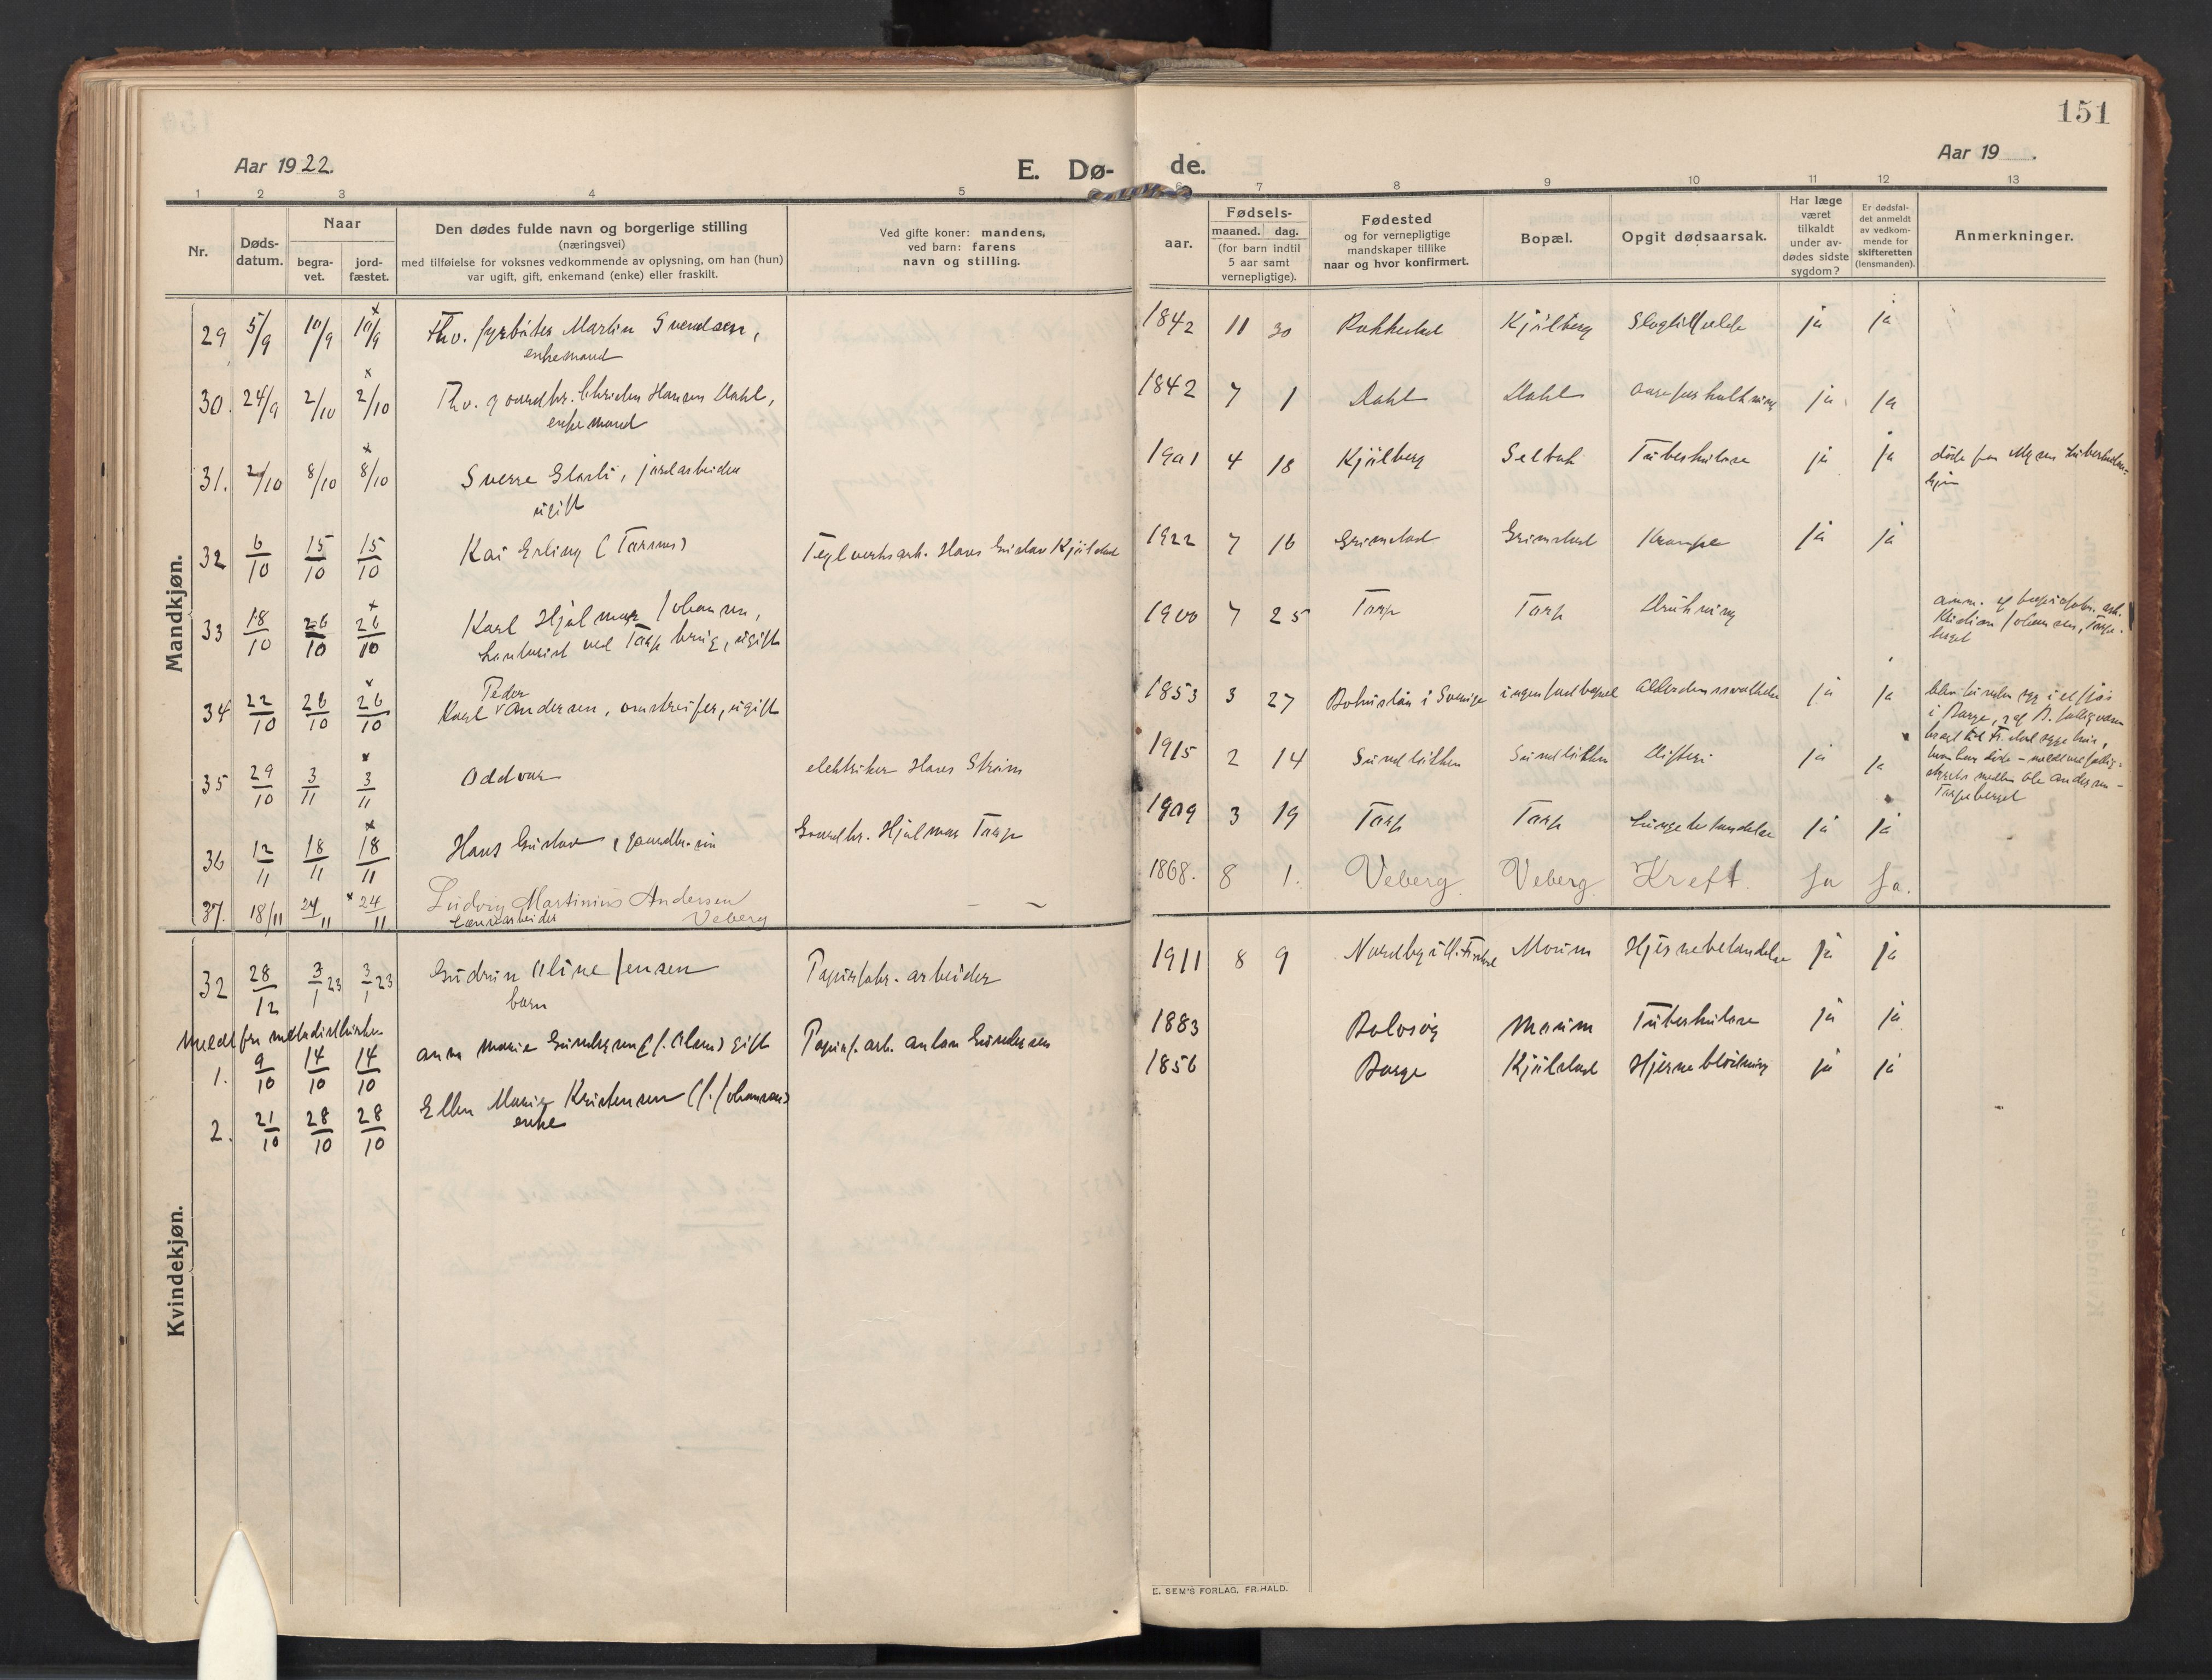 151
Aar 1922.
E. Dø-
de.
Aar 19
1 2 3 4 5 6 7 8 9 10 11 12 13
Nr.
Døds-
datum.
Naar
begra-
vet.
jord-
fæstet.
Den dødes fulde navn og borgerlige stilling
(næringsvei)
med tilføielse for voksnes vedkommende av oplysning, om han (hun)
var ugift, gift, enkemand (enke) eller fraskilt.
Ved gifte koner: mandens,
ved barn: farens
navn og stilling.
Fødsels-
aar.
maaned. dag.
(for barn indtil
5 aar samt
vernepligtige).
Fødested
og for vernepligtige
mandskaper tillike
naar og hvor konfirmert.
Bopæl.
Opgit dødsaarsak.
Har læge
været
tilkaldt
under av-
dødes sidste
sygdom?
Er dødsfal-
det anmeldt
av vedkom-
mende for
skifteretten
(lensmanden).
Anmerkninger.
Mandkjøn.
29 5/9 10/9 10/9 Fhv. fyrbøter Martin Svendsen, 1842 11 30 Rakkestad Kjølberg ja ja
enkemand
30. 24/9 2/10 2/10 Fhv. gaardbr. Christen Hansen Dahl, 1842 7 1 Dahl Dahl aareforkalkning ja ja
enkemand
31. 2/10 8/10 8/10 Sverre Glarli, jordarbeider 1901 4 18 Kjølberg Selbak Tuberkulose ja ja døde paa Myren tuberkulose-
ugift hjem
32 6/10 15/10 15/10 Kai Erling (Tarms) Teglverksarb. Hans Gustav Kjølstad 1922 7 16 Grimstad Grimstad Krampe ja ja
33 18/10 26/10 26/10 Karl Hjalmar Johansen, 1900 7 25 Torp Torp Drukning anm. af papirfabr. arb.
kontorist ved Torp brug, ugift Kristian Johansen, Torpe-
berget
34 22/10 28/10 28/10 Karl Peder Andersen, omstreifer, ugift 1853 3 27 Bohuslän i Sverige ingen fast bopæl Alderdomssvakhet ja ja
35 29/10 3/11 3/11 Oddvar elektriker Hans Strøm 1915 2 14 Sundløkken Sundløkken Difteri ja ja
36 12/11 18/11 18/11 Hans Gustav, gaardbr. søn Gaardbr. Hjalmar Torp 1909 3 19 Torp Torp Lungebetændelse ja ja
37. 18/11 24/11 24/11 Ludvig Martinius Andersen 1868. 8 1. Veberg Veberg Kreft. Ja Ja.
Lænsearbeider Veberg
Kvindekjøn.
32 28/12 3/1 23 3/1 23 Gudrun Oline Jensen Papirfabr. arbeider 1911 8 9 Moum Hjernebetændelse ja ja
barn
Meldt fra methodistkirke
1. 9/10 14/10 14/10 Anna Marie Gundersen (f. Olsen) gift Papirf. arb. Anton Gundersen 1883 Moum Tuberkulose ja ja
2. 21/10 28/10 28/10 Ellen Marie Kristensen (f. Johansen) 1856 Borge Kjølstad Hjerneblødning ja ja
enke
E. SEM'S FORLAG, FR.HALD.